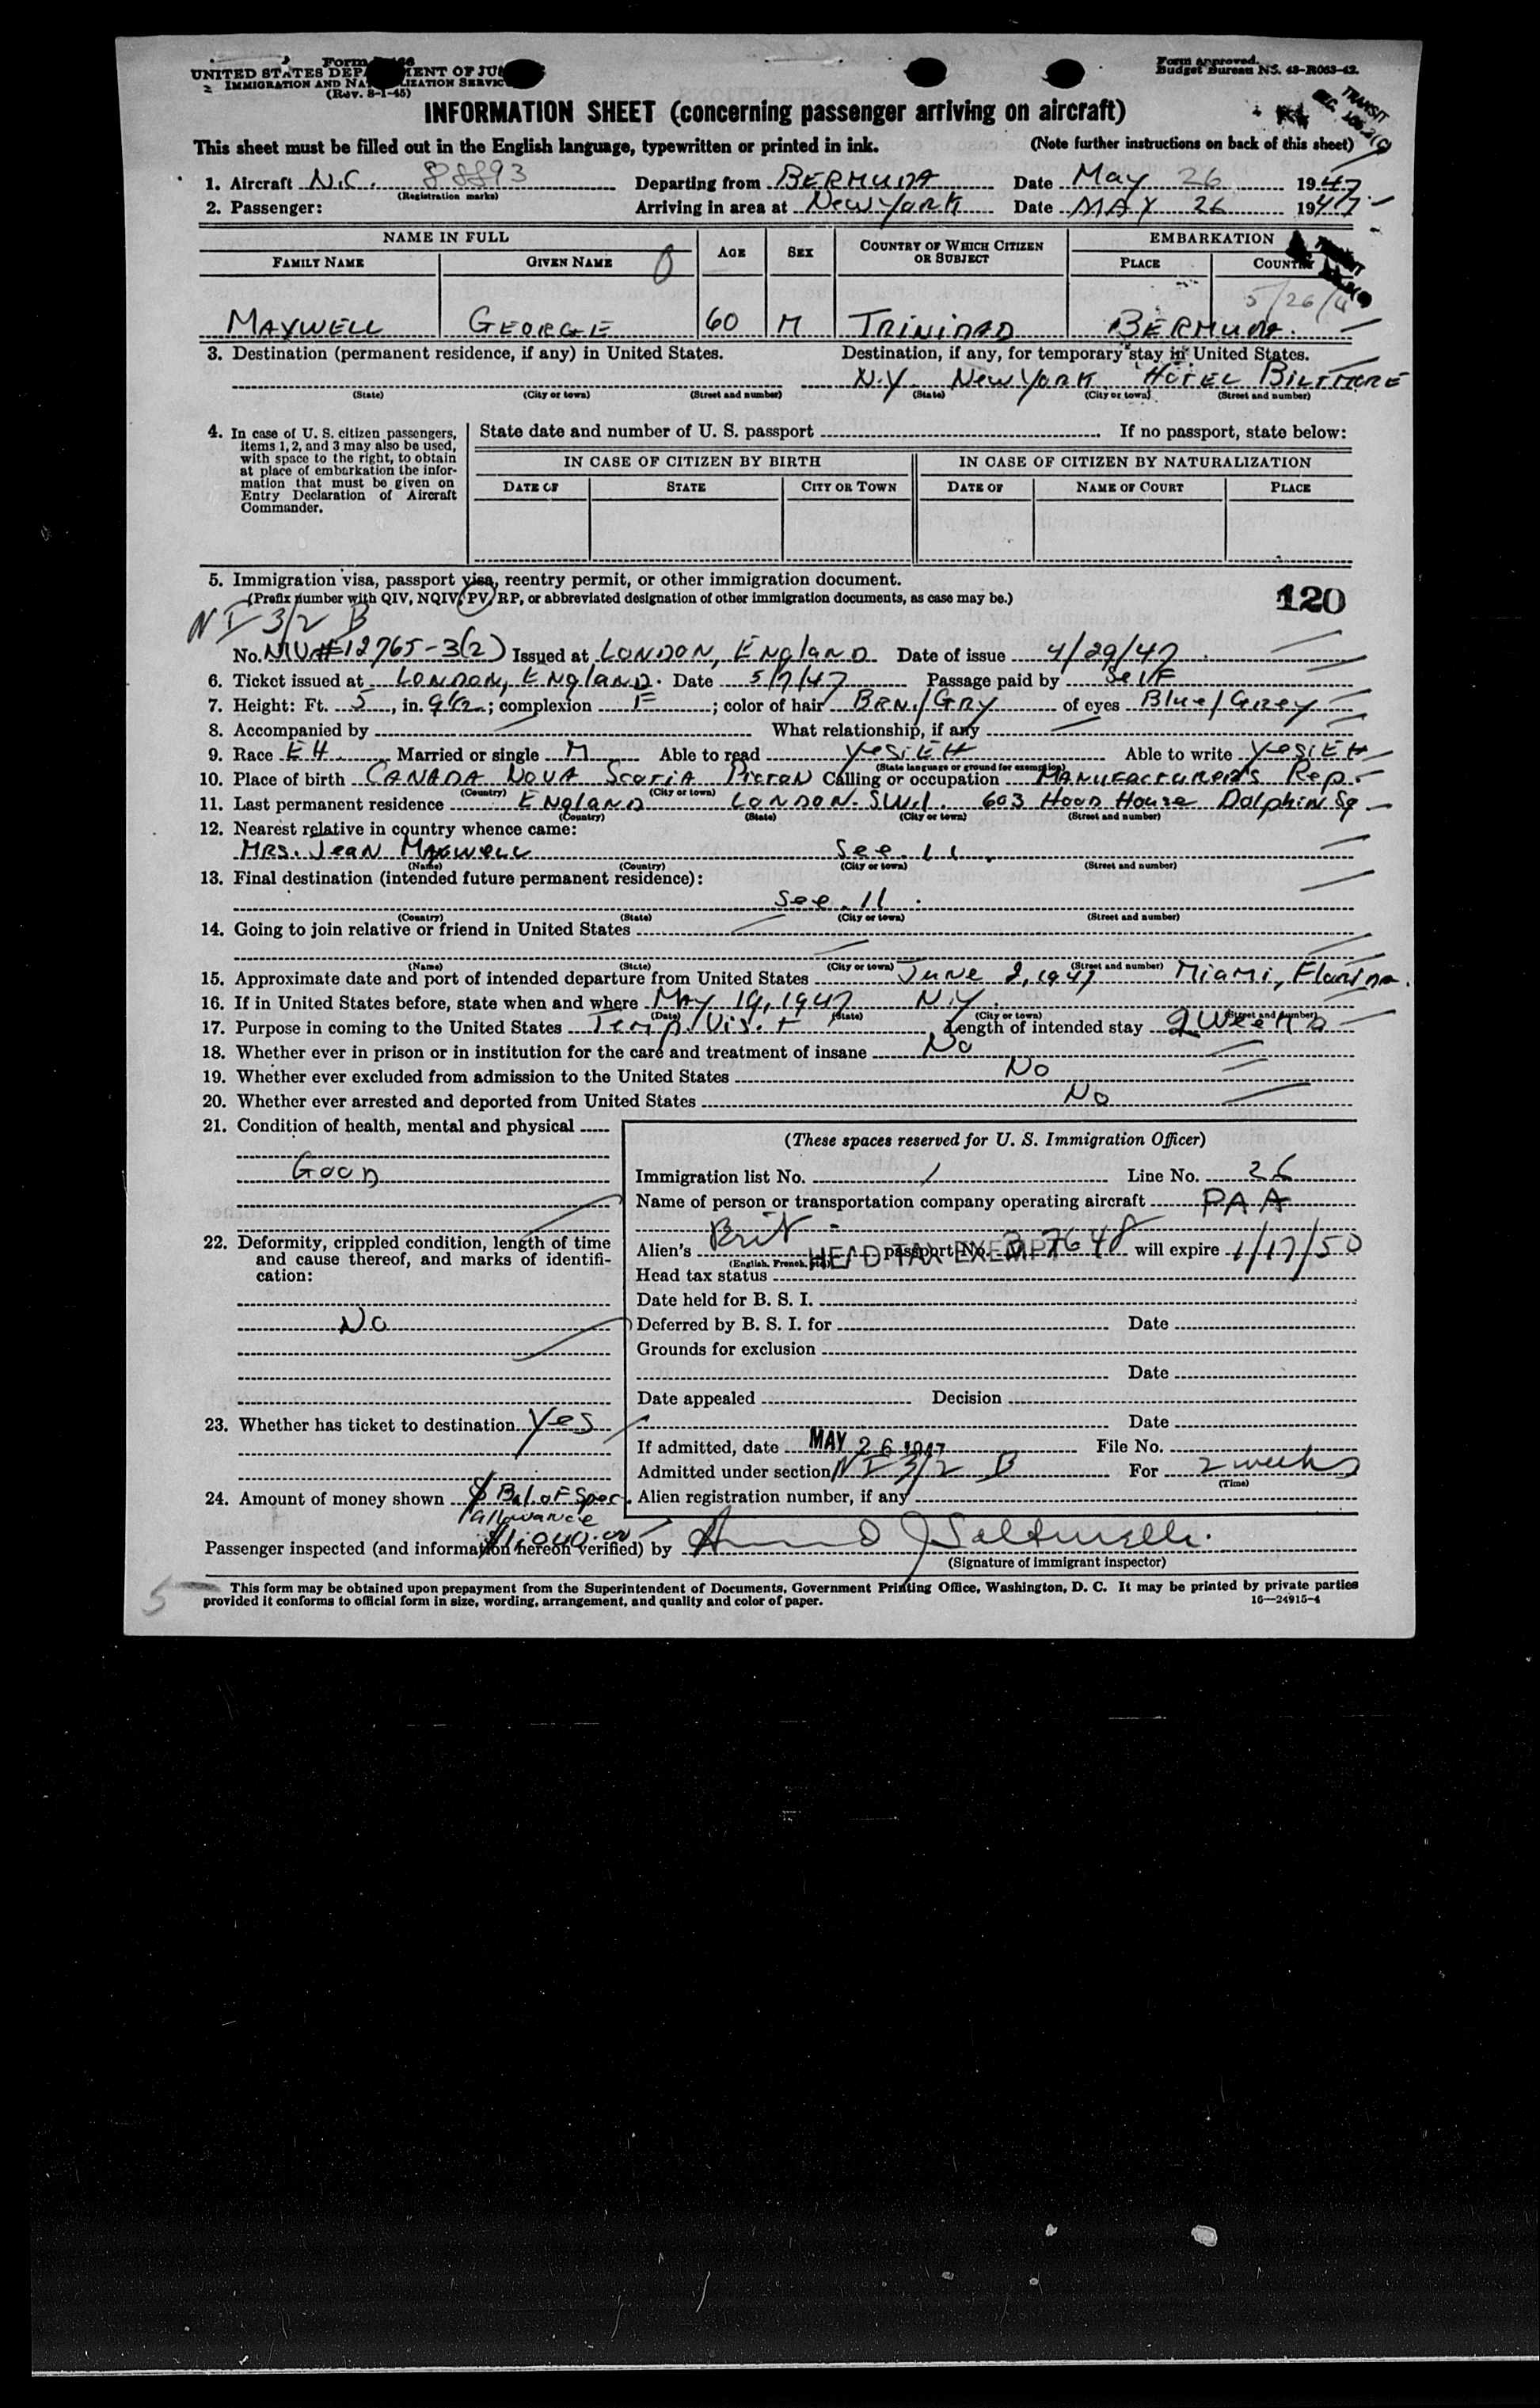 UNITED STATES DEPARTMENT OF JUSTICE
IMMIGRATION AND NATURALIZATION SERVICE
(Rev. 8-1-45)
Form approved.
Budget Bureau No. 43-R063-42.
TRANSIT
INFORMATION SHEET (concerning passenger arriving on aircraft)
This sheet must be filled out in the English language, typewritten or printed in ink. (Note further instructions on back of this sheet)
1. Aircraft N.C. 88893 Departing from BERMUDA Date May 26 1947
(Registration marks)
2. Passenger: Arriving in area at New York Date MAY 26 1947
NAME IN FULL AGE SEX COUNTRY OF WHICH CITIZEN OR SUBJECT EMBARKATION
FAMILY NAME GIVEN NAME PLACE COUNTRY
5/26/4
MAXWELL GEORGE 60 M TRINIDAD BERMUDA.
3. Destination (permanent residence, if any) in United States. Destination, if any, for temporary stay in United States.
N.Y. New York HOTEL BILTMORE
(State) (City or town) (Street and number) (State) (City or town) (Street and number)
4. In case of U. S. citizen passengers, items 1, 2, and 3 may also be used, with space to the right, to obtain at place of embarkation the information that must be given on Entry Declaration of Aircraft Commander.
State date and number of U. S. passport If no passport, state below:
IN CASE OF CITIZEN BY BIRTH IN CASE OF CITIZEN BY NATURALIZATION
DATE OF STATE CITY OR TOWN DATE OF NAME OF COURT PLACE
5. Immigration visa, passport visa, reentry permit, or other immigration document.
(Prefix number with QIV, NQIV, PV, RP, or abbreviated designation of other immigration documents, as case may be.)
120
N I 3/2 B
No. NIV#12765-3(2) Issued at LONDON, ENglAND Date of issue 4/29/47
6. Ticket issued at LONDON, ENglAND. Date 5/7/47 Passage paid by Self
7. Height: Ft. 5, in. 9 1/2; complexion F; color of hair BRN./GRY of eyes Blue/Grey
8. Accompanied by What relationship, if any
9. Race EH Married or single M Able to read yes; EH Able to write yes; EH
(State language or ground for exemption)
10. Place of birth CANADA NOVA Scotia Pictou Calling or occupation MANUFACTURER'S Rep.
(Country) (City or town)
11. Last permanent residence ENglAND LONDON. S.W.1. 603 Hood House Dolphin Sq
(Country) (State) (City or town) (Street and number)
12. Nearest relative in country whence came:
MRS. Jean Maxwell See 11.
(Name) (Country) (City or town) (Street and number)
13. Final destination (intended future permanent residence):
See 11.
(Country) (State) (City or town) (Street and number)
14. Going to join relative or friend in United States
(Name) (State) (City or town) (Street and number)
15. Approximate date and port of intended departure from United States June 2, 1947 Miami, Florida.
16. If in United States before, state when and where May 19, 1947 N.Y.
(Date) (State) (City or town) (Street and number)
17. Purpose in coming to the United States Temp. Visit Length of intended stay 2 Weeks
18. Whether ever in prison or in institution for the care and treatment of insane No
19. Whether ever excluded from admission to the United States No
20. Whether ever arrested and deported from United States No
21. Condition of health, mental and physical
Good
22. Deformity, crippled condition, length of time and cause thereof, and marks of identification:
No
23. Whether has ticket to destination Yes
24. Amount of money shown $ Bal. of Spec.
allowance
$1,000.00
(These spaces reserved for U. S. Immigration Officer)
Immigration list No. 1 Line No. 26
Name of person or transportation company operating aircraft PAA
Alien's Brit passport No. 37648 will expire 1/17/50
(English, French, etc.)
HEAD TAX EXEMPT
Head tax status
Date held for B. S. I.
Deferred by B. S. I. for Date
Grounds for exclusion
Date
Date appealed Decision
Date
If admitted, date MAY 26 1947 File No.
Admitted under section N I 3/2 B For 2 weeks
(Time)
Alien registration number, if any
Passenger inspected (and information hereon verified) by
(Signature of immigrant inspector)
5
This form may be obtained upon prepayment from the Superintendent of Documents, Government Printing Office, Washington, D. C. It may be printed by private parties
provided it conforms to official form in size, wording, arrangement, and quality and color of paper. 16—24915-4